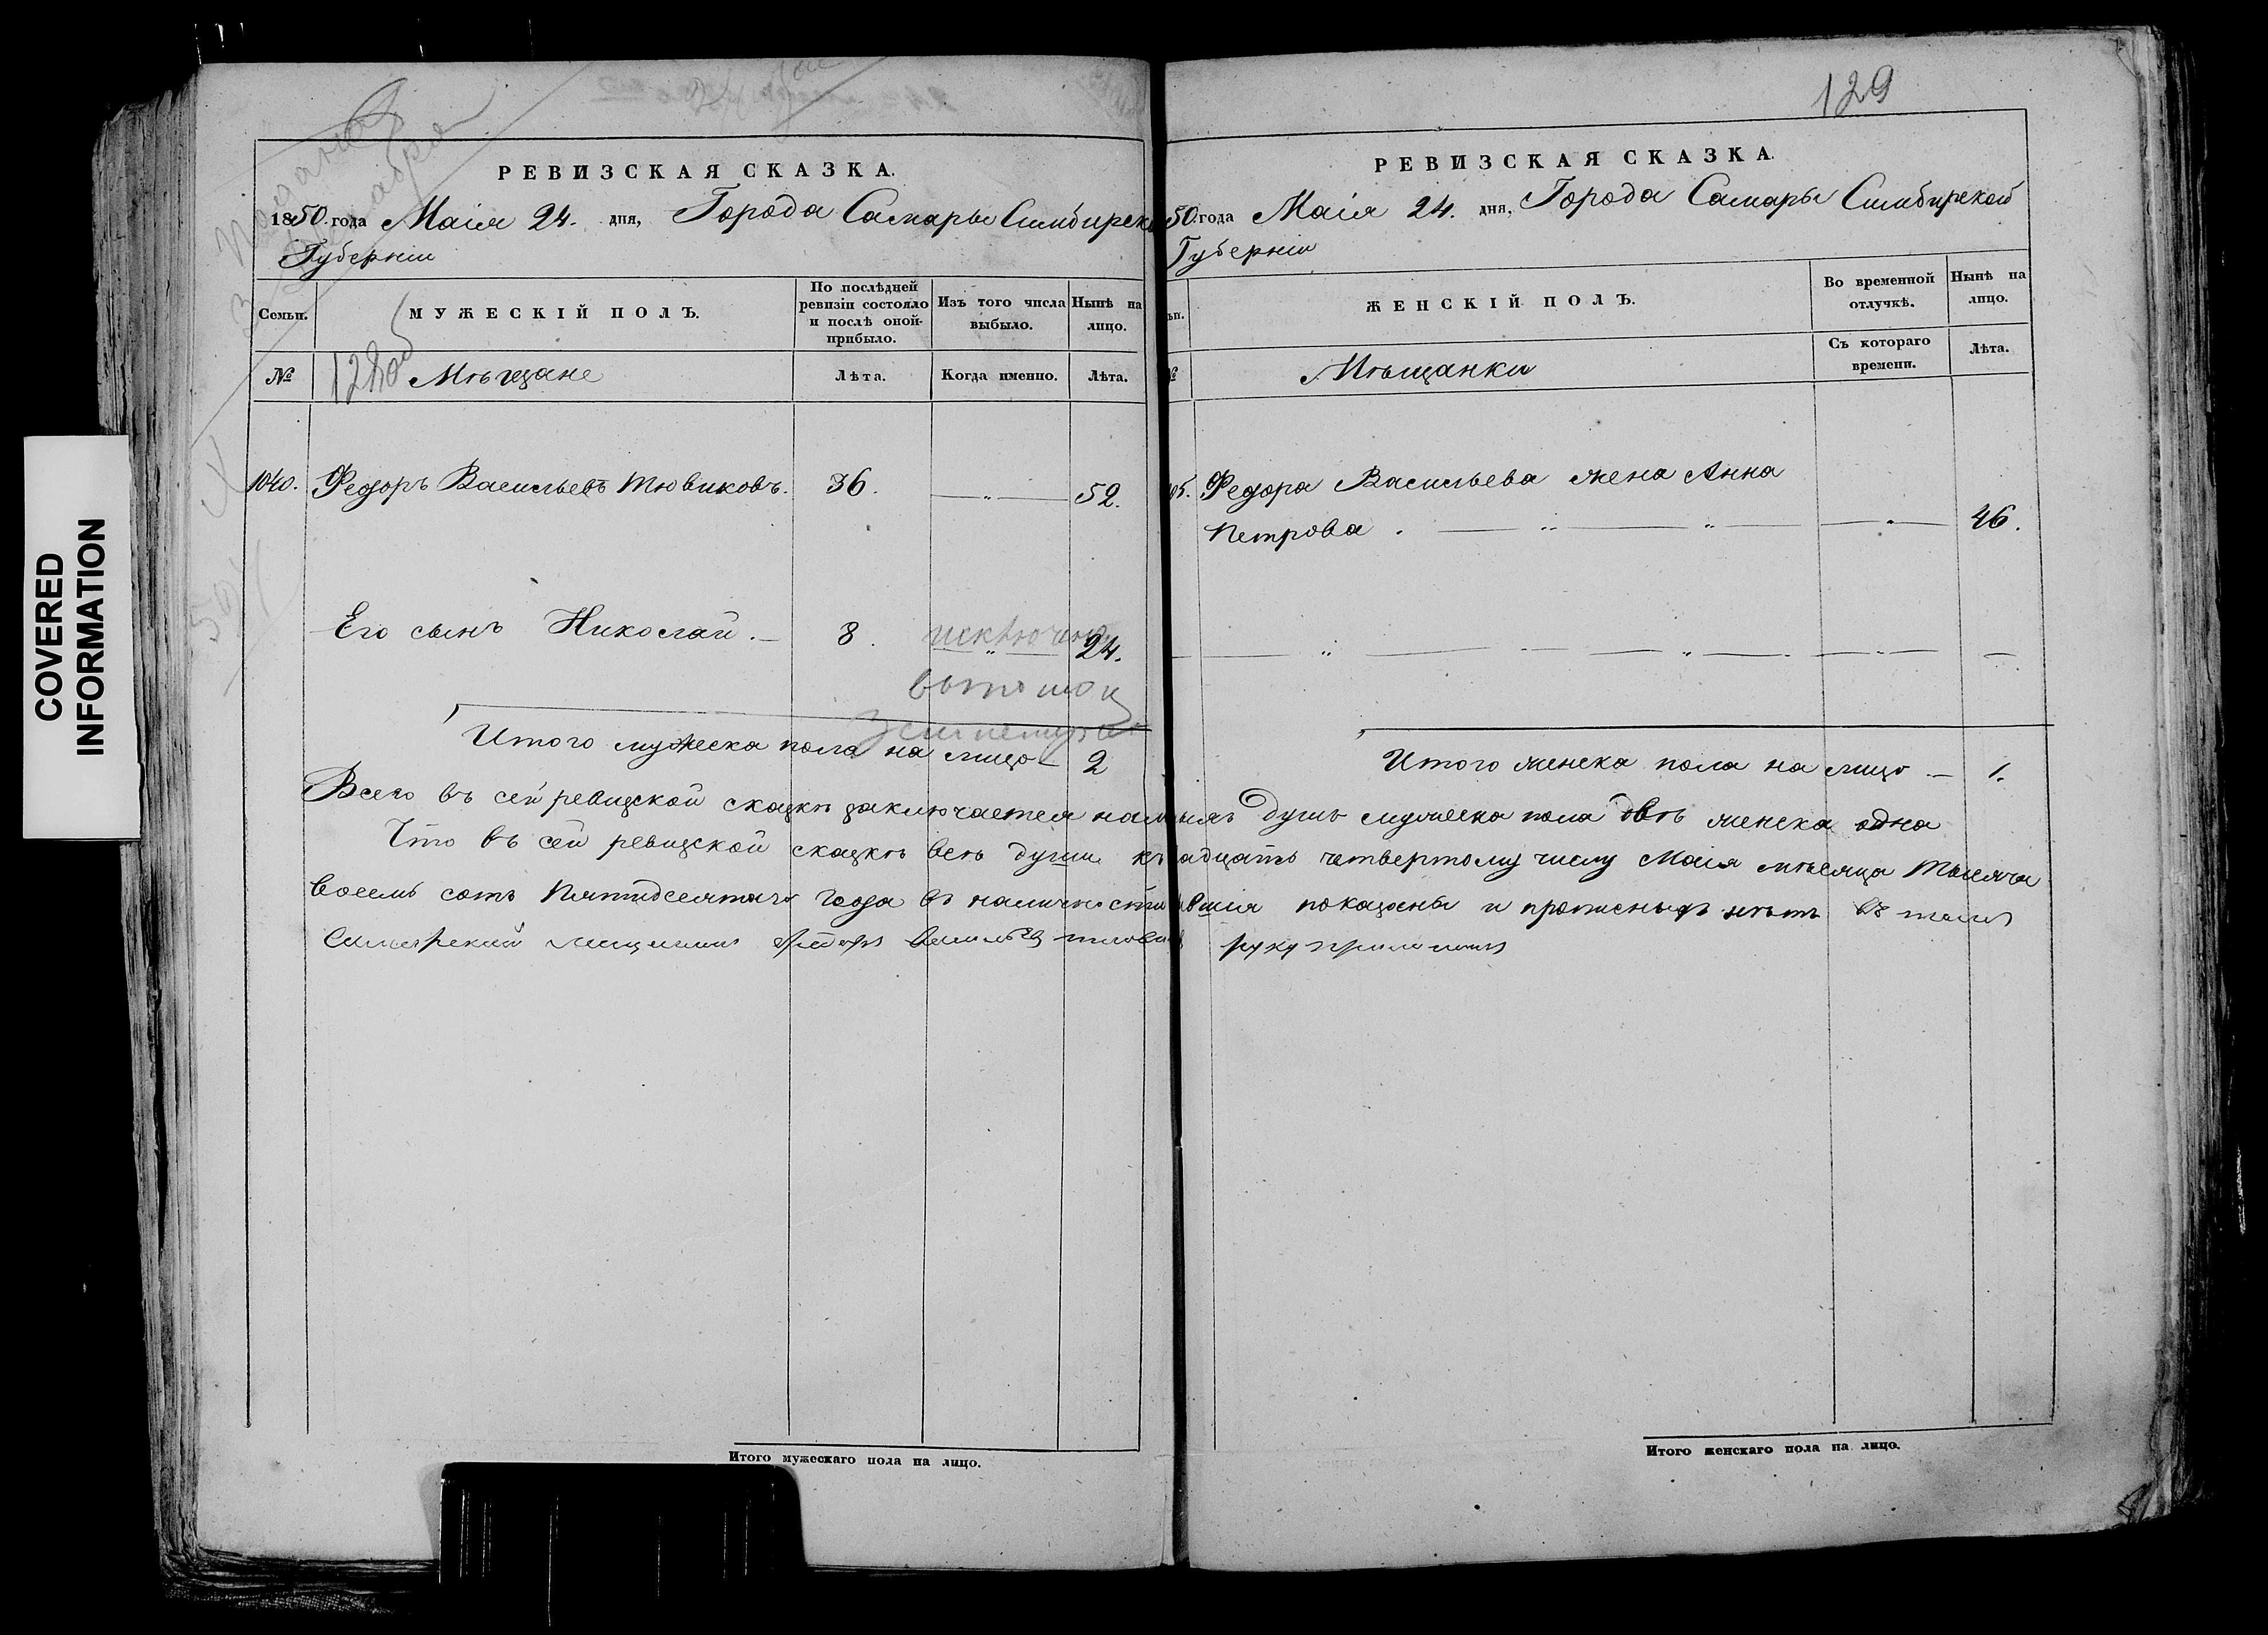 COVERED
INFORMATION
РЕВИЗСКАЯ СКАЗКА.
1850. года Маія 24. дня, Города Самары Симбирско
Губерніи
Семьи.
МУЖЕСКІЙ ПОЛЪ.
По послѣдней
ревизіи состояло
и послѣ оной
прибыло.
Изъ того числа
выбыло.
Нынѣ на
лицо.
№
Мѣщане
Лѣта.
Когда именно.
Лѣта.
1040. Федоръ Васильевъ Тювиковъ. 36. 52.
Его сынъ Николай. 8. 24.
исключенъ
Итого мужеска пола на лицо 2
129
РЕВИЗСКАЯ СКАЗКА.
50. года Маія 24. дня, Города Самары Симбирской
Губерніи
ьи.
ЖЕНСКІЙ ПОЛЪ.
Во временной
отлучкѣ.
Нынѣ на
лицо.
№
Мѣщанки
Съ котораго
времени.
Лѣта.
Федора Васильева жена Анна
Петрова. 46.
Итого женска пола на лицо 1.
Всего въ сей ревизской сказкѣ заключается душъ мужеска пола двѣ женска одна
Что въ сей ревизской сказкѣ всѣ души къ адцать четвертому числу Маія мѣсяца Тысяча
восемь сотъ Пятидесятаго года въ наличности показаны и прописныхъ нѣтъ въ томъ
Самарский мещининъ Федоръ Васильевъ руку приложилъ
Итого мужескаго пола на лицо.
Итого женскаго пола на лицо.